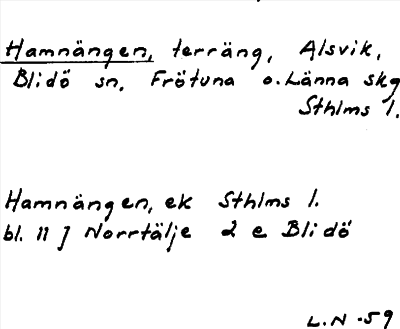 Hamnängen, terräng, Alsvik,
Blidö sn. Frötuna o. Länna skg
Sthlms l.
Hamnängen, ek Sthlms l.
bl. 11 J Norrtälje 2 e Blidö
L.N -59